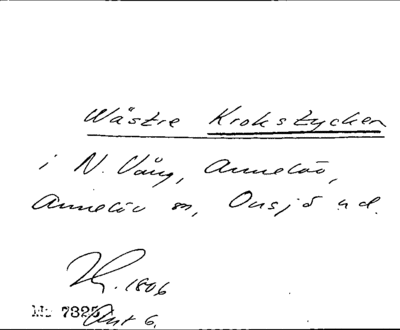 Wästre Krokstycken
i N. Vång, Annelöv,
Annelöv sn, Onsjö hd.
1806
Ms 7325
Akt 6.